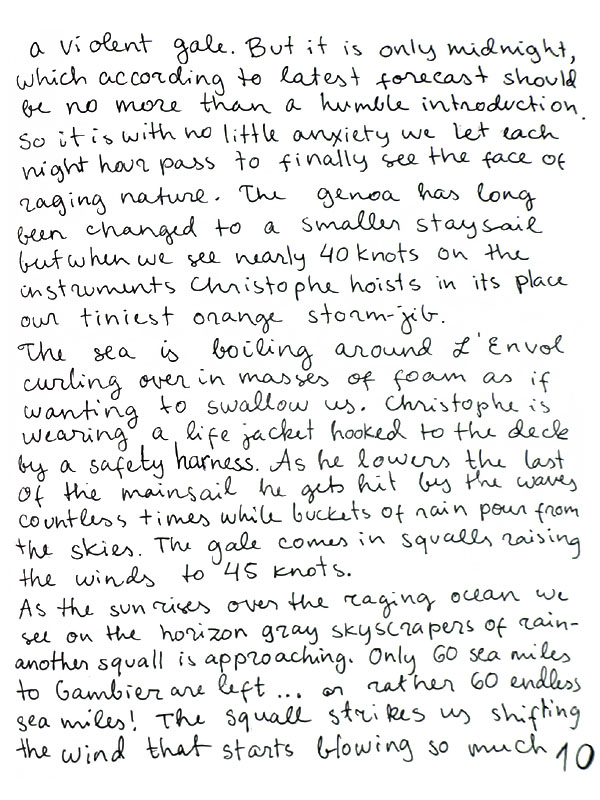 a violent gale. But it is only midnight,
which according to latest forecast should
be no more than a humble introduction.
So it is with no little anxiety we let each
night hour pass to finally see the face of
raging nature. The genoa has long
been changed to a smaller staysail
but when we see nearly 40 knots on the
instruments Christophe hoists in its place
our tiniest orange storm-jib.
The sea is boiling around L'Envol
curling over in masses of foam as if
wanting to swallow us. Christophe is
wearing a life jacket hooked to the deck
by a safety harness. As he lowers the last
of the mainsail he gets hit by the waves
countless times while buckets of rain pour from
the skies. The gale comes in squalls raising
the winds to 45 knots.
As the sun rises over the raging ocean we
see on the horizon gray skyscrapers of rain-
another squall is approaching. Only 60 sea miles
to Gambier are left ... or rather 60 endless
sea miles! The squall strikes us shifting
the wind that starts blowing so much 10